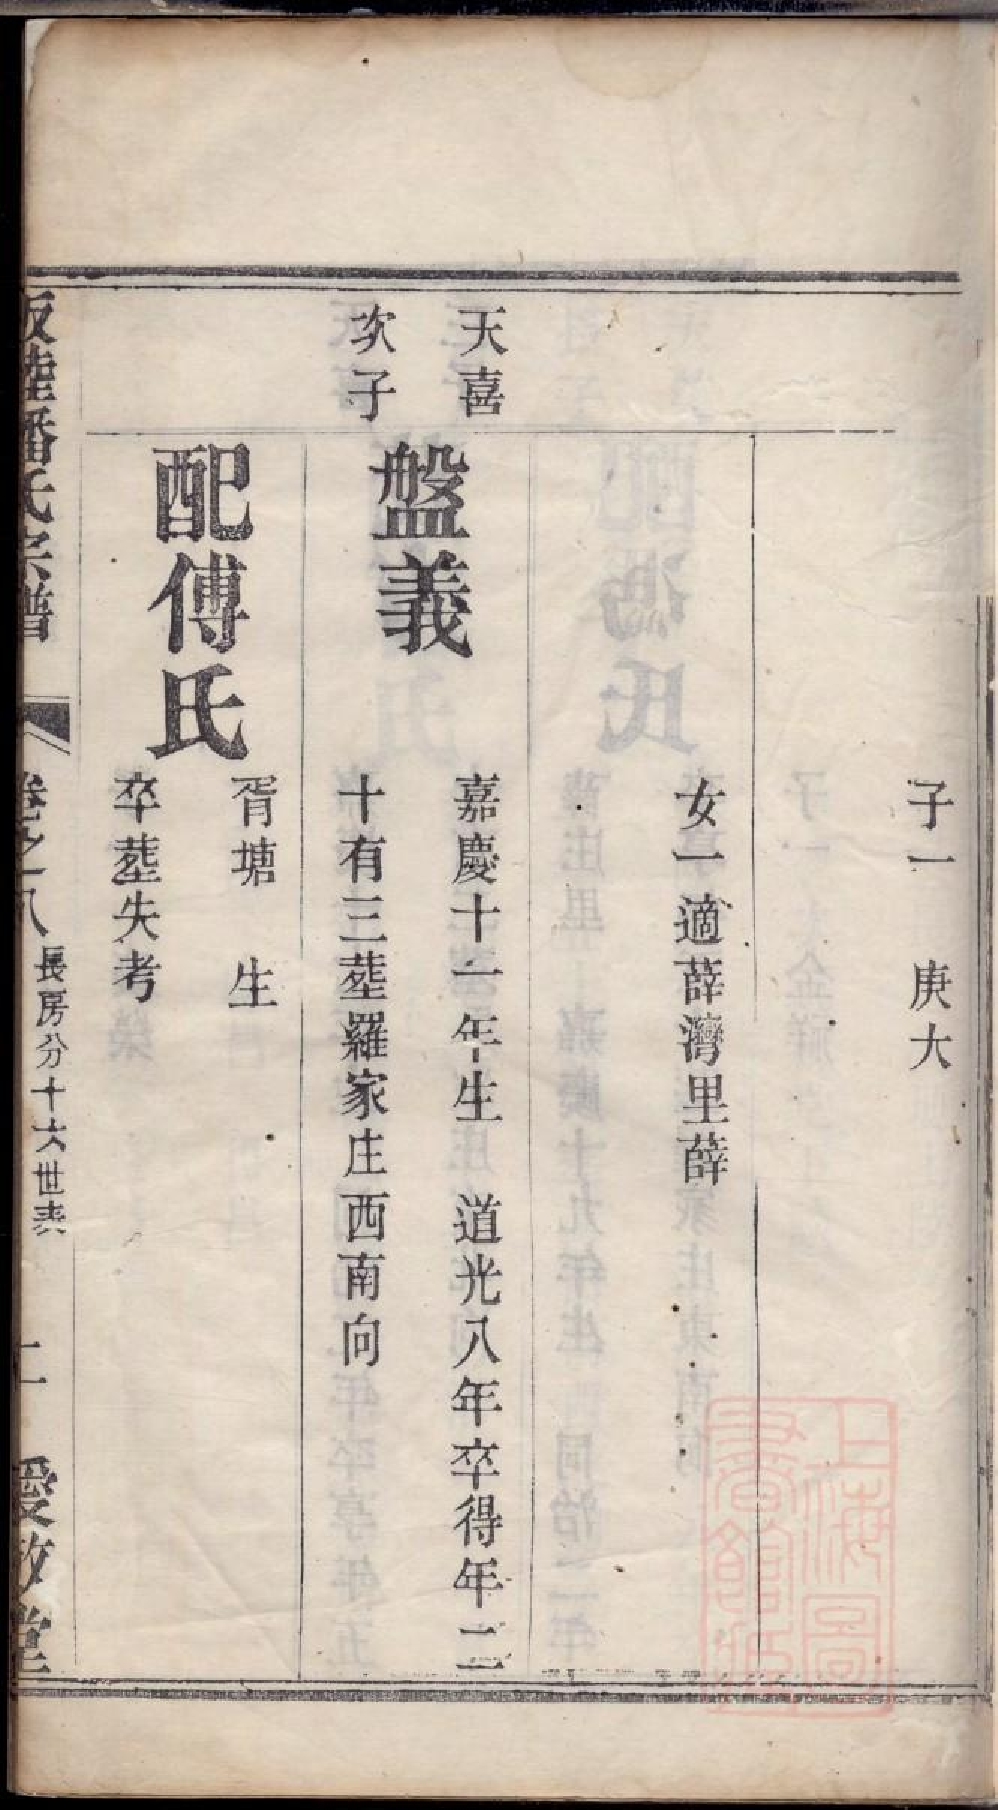 子一　庚大
女一適薛灣里薛
天喜
次子
盤義
嘉慶十一年生　道光八年卒得年二
十有三塟羅家庄西南向
配傅氏
胥塘　生
卒塟失考
潘氏宗譜
卷之八
長房分十六世表
二
愛敬堂
上海圖
書館藏